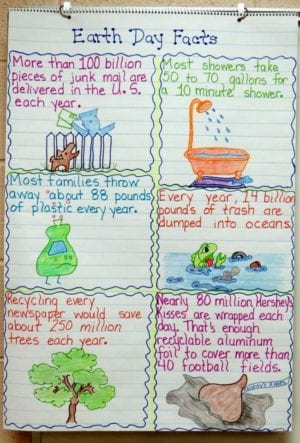 Earth Day Facts
More than 100 billion
pieces of junk mail are
delivered in the U.S.
each year.
Most showers take
50 to 70 gallons for
a 10 minute shower.
Most families throw
away about 88 pounds
of plastic every year.
Every year, 14 billion
pounds of trash are
dumped into oceans
Recycling every
newspaper would save
about 250 million
trees each year.
Nearly 80 million Hershey's
Kisses are wrapped each
day. That's enough
recyclable aluminum
foil to cover more than
40 football fields.